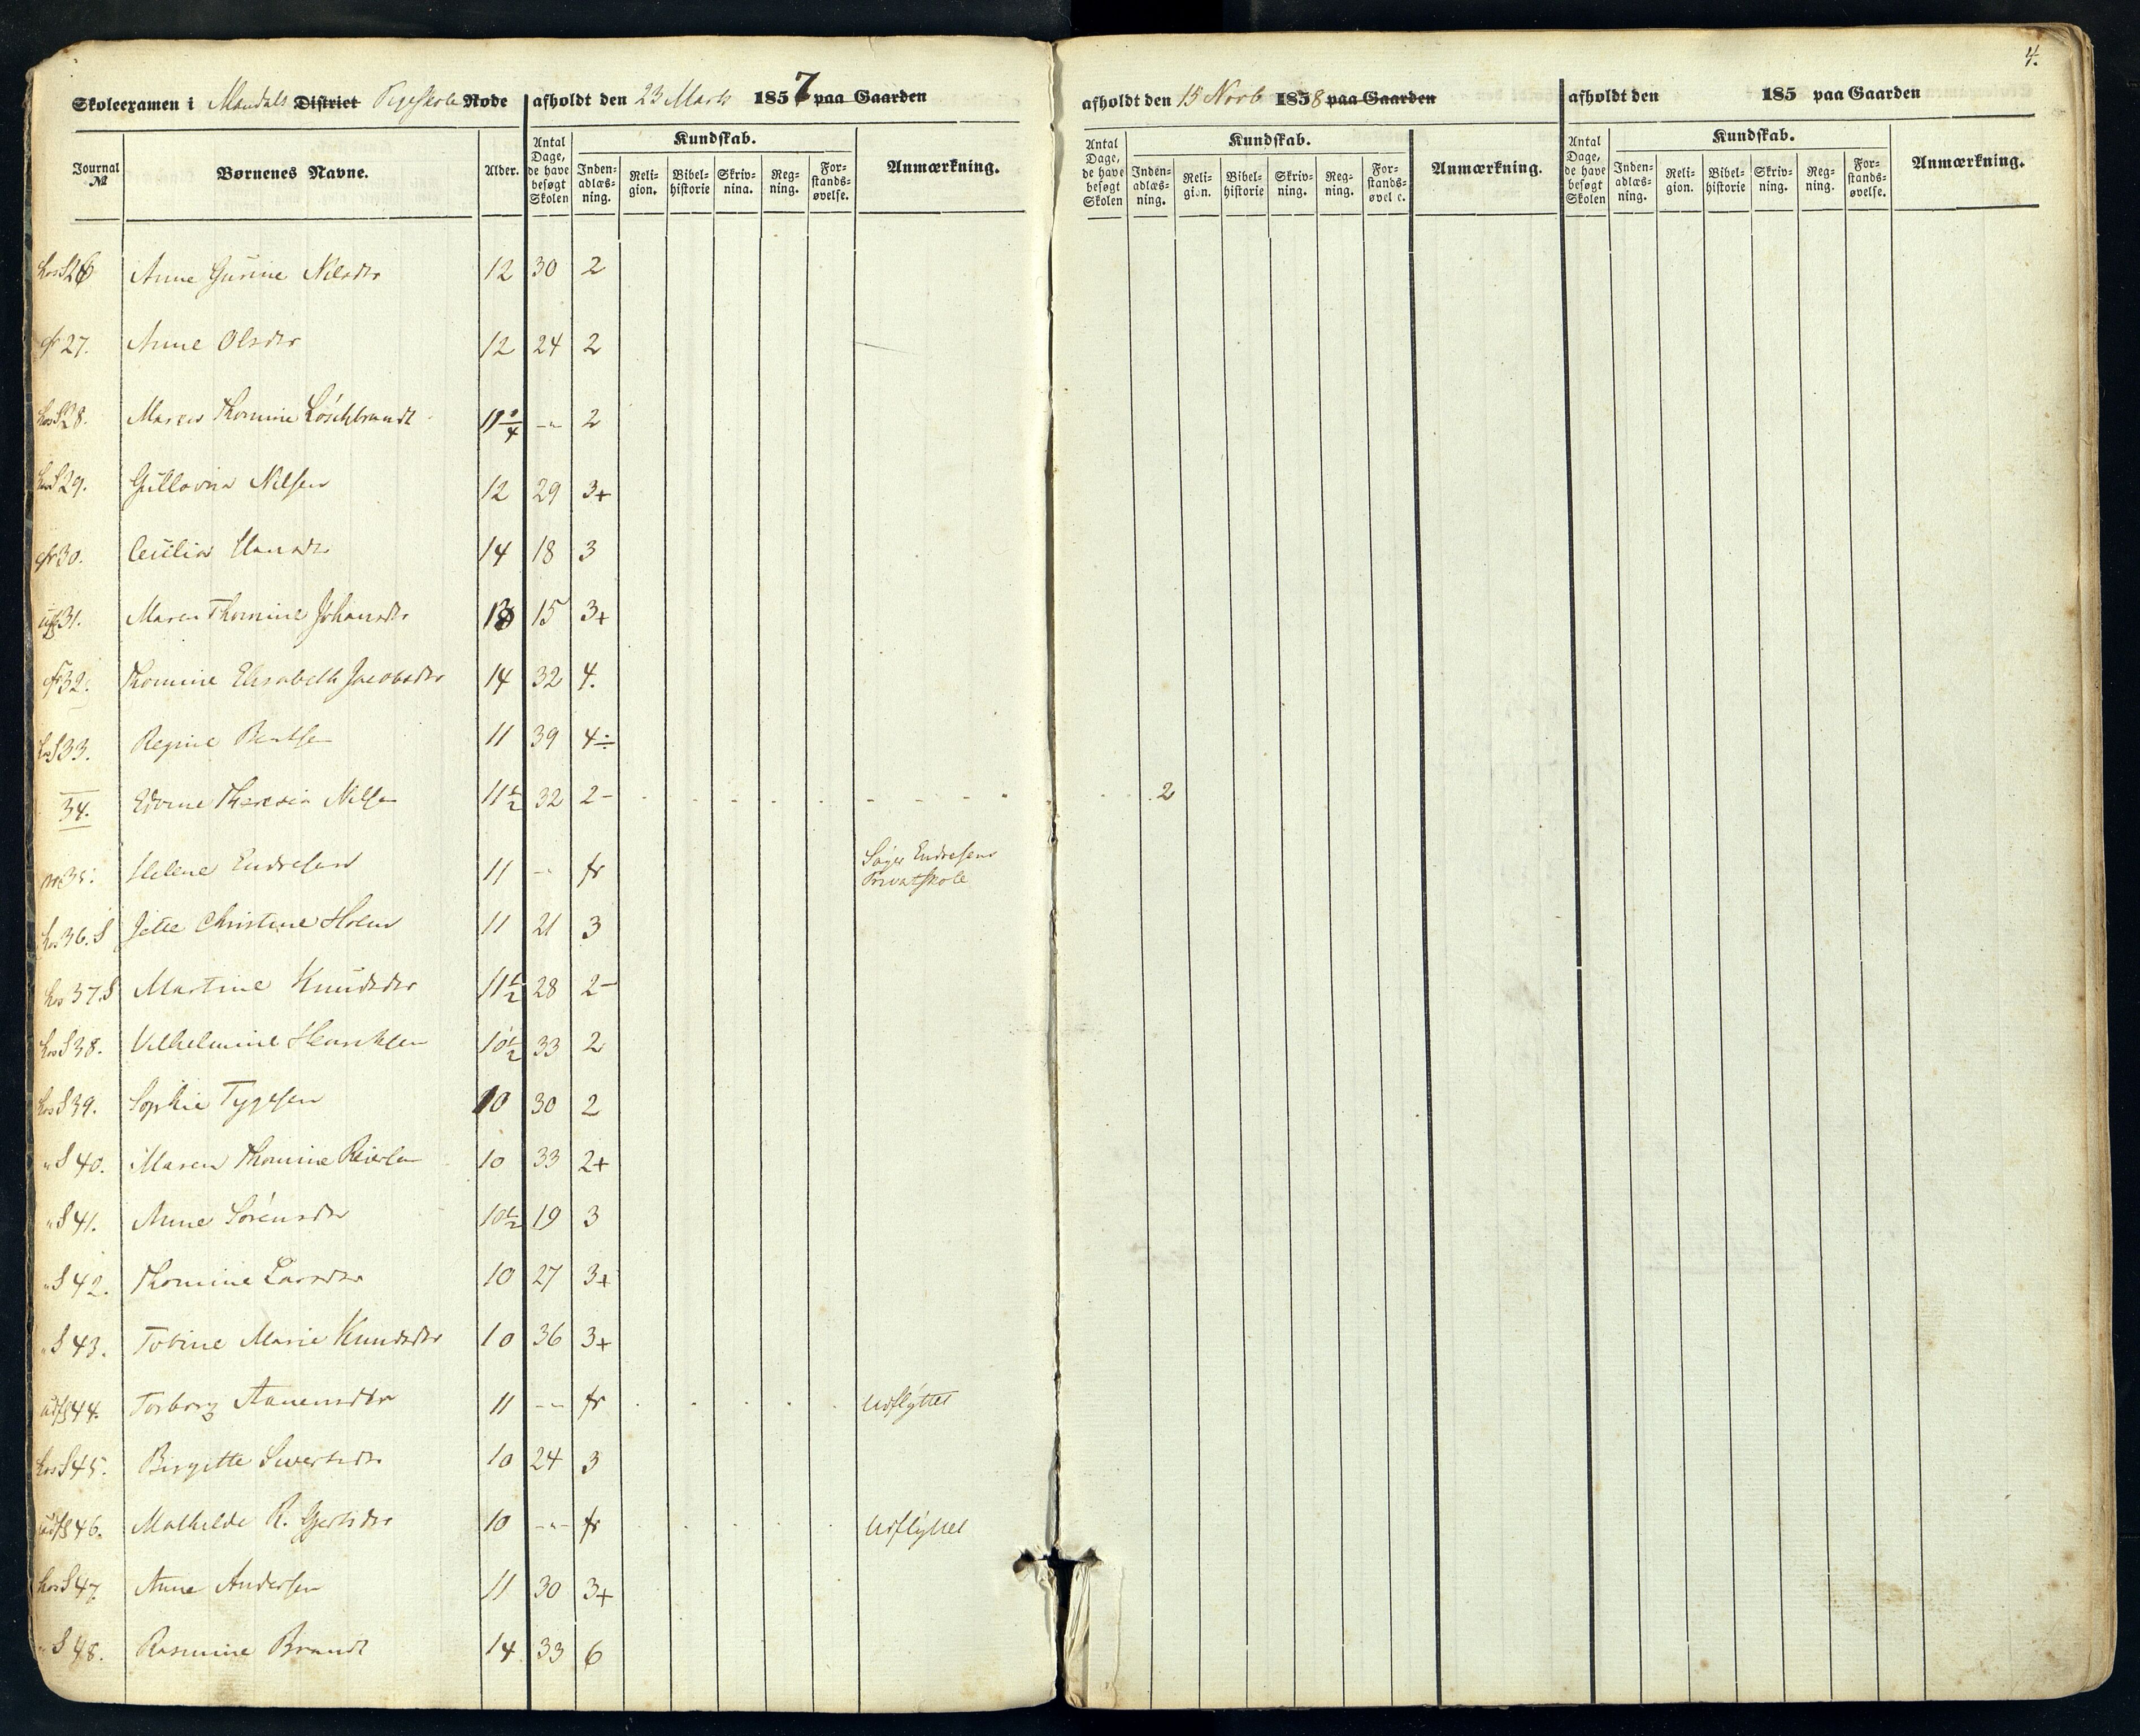 4.
Skoleexamen i Mandals District Pigeskole Rode afholdt den 23 Marts 1857 paa Gaarden
afholdt den 15 Novb 1858 paa Gaarden
afholdt den 185 paa Gaarden
Journal № Børnenes Navne. Alder. Antal Dage, de have besøgt Skolen Kundskab. Inden-adlæs-ning. Reli-gion. Bibel-historie Skriv-nina. Reg-ning. For-stands-øvelse. Anmærkning.
Antal Dage, de have besøgt Skolen Kundskab. Inden-adlæs-ning. Reli-gion. Bibel-historie Skriv-ning. Reg-ning. For-stands-øvel e. Anmærkning.
Antal Dage, de have besøgt Skolen Kundskab. Inden-adlæs-ning. Reli-gion. Bibel-historie Skriv-ning. Reg-ning. For-stands-øvelse. Anmærkning.
26 Anne Gurine Nilsdtr 12 30 2
27. Anne Olsdtr 12 24 2
28. Maren Thomine Löschbrandt 11 -"- 2
29. Gullovia Nilsen 12 29 3+
30. Cecilia Hansdtr 14 18 3
31. Maren Thomine Johansdtr 13 15 3+
32. Thomine Elisabeth Jacobsdtr 14 32 4.
33. Regine Bentsen 11 39 4÷
34. Edvine Theresia Nilsen 11½ 32 2- 2
35. Helene Endresen 11 -"- fr Søger Endresens Privatskole
36. Jette Christine Holm 11 21 3
37. Martine Knudsdtr 11½ 28 2-
38. Vilhelmine Henriksen 10½ 33 2
39. Sophie Tygesen 10 30 2
40. Maren Thomine Reiersen 10 33 2+
41. Anne Sørensdtr 10½ 19 3
42. Thomine Larsdtr 10 27 3+
43. Tobine Marie Knudsdtr 10 36 3+
44. Torborg Aanensdtr 11 -"- fr Udflyttet
45. Birgitte Sivertsdtr 10 24 3
46. Mathilde R. Gjertsdtr 10 -"- fr Udflyttet
47. Anne Andersen 11 30 3+
48. Rasmine Brandt 14 33 6